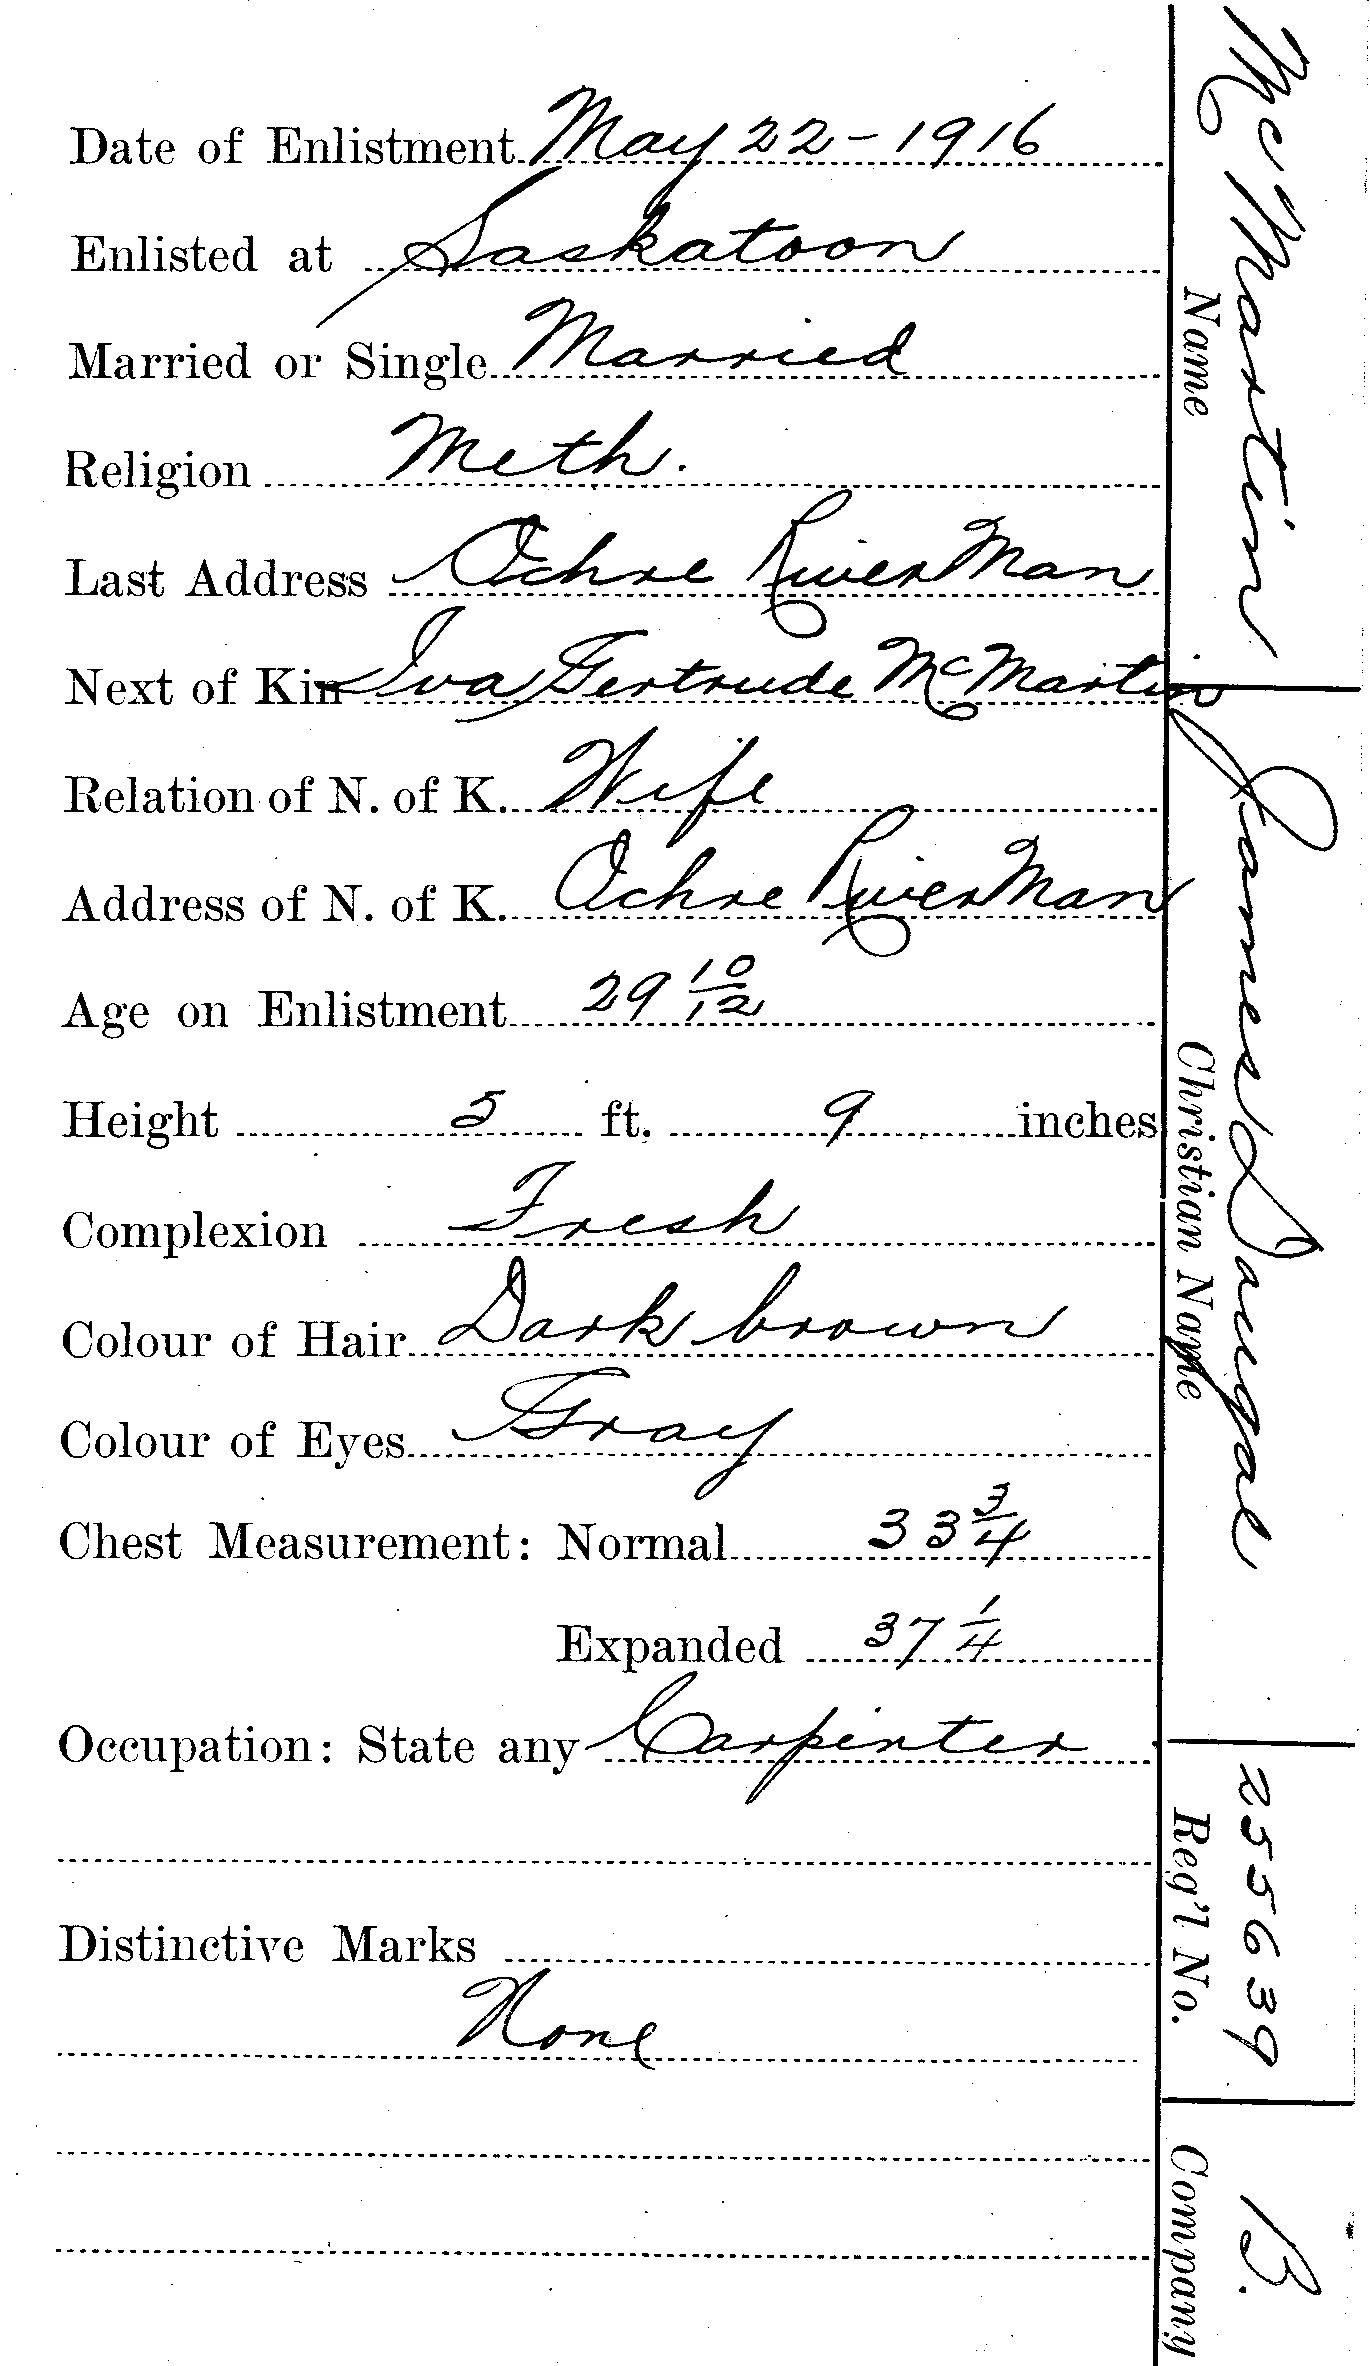 Date of Enlistment May 22 - 1916
Enlisted at Saskatoon
Married or Single Married
Religion Meth.
Last Address Ochre River Man
Next of Kin Iva Gertrude McMartin
Relation of N. of K. Wife
Address of N. of K. Ochre River Man
Age on Enlistment 29 10/12
Height 5 ft. 9 inches
Complexion Fresh
Colour of Hair Dark brown
Colour of Eyes Gray
Chest Measurement: Normal 33 3/4
Expanded 37 1/4
Occupation: State any Carpenter
Distinctive Marks
None
McMartin James Dougal 255639 B.
Name Christian Name Reg'l No. Company